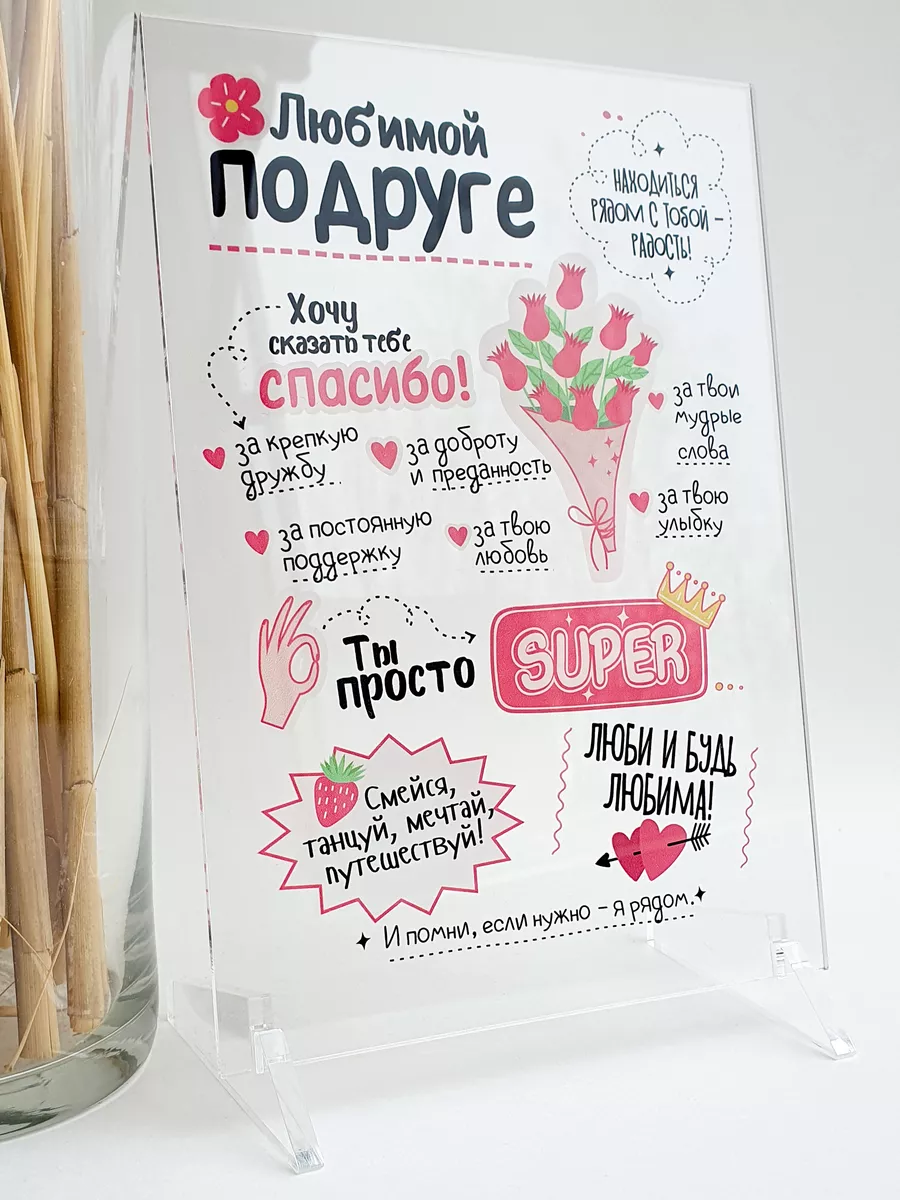 Любимой
подруге
НАХОДИТЬСЯ
РЯДОМ С ТОБОЙ –
РАДОСТЬ!
Хочу
сказать тебе
спасибо!
за крепкую
дружбу
за доброту
и преданность
за твои
мудрые
слова
за постоянную
поддержку
за твою
любовь
за твою
улыбку
Ты
просто
SUPER
Смейся,
танцуй, мечтай,
путешествуй!
ЛЮБИ И БУДЬ
ЛЮБИМА!
И помни, если нужно – я рядом.